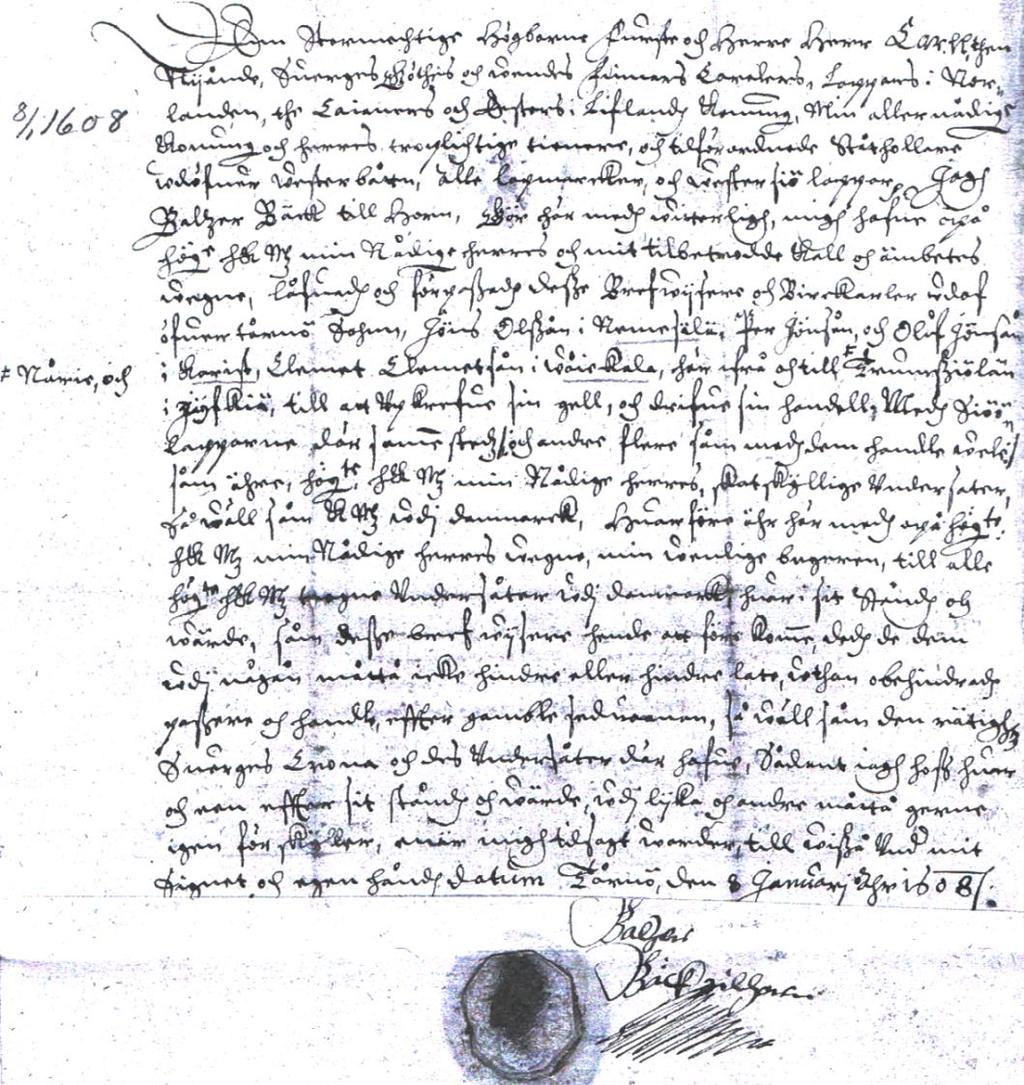 Den Stormechtige Högborne Furste och Herre Herr Carll then
Nijonde, Sueriges Göthes och Wendes Finnars Carelers, Lappars i Nor-
8/1 1608
landen, the Caianers och Esters i Lifland Konung, Min aller nådige
Konung och herres troplichtige tienere, och tilförordnede Ståthollare
vdöfuer Westerbåtn, alle lapmarcker, och wester siö lappar, Jagh
Baltzer Bäck till Horn, Giör här medh witterligh, migh hafue opå
högte hKM min Nådige herres och mit tilbetrodde kall och ämbetes
wegne, låfuedh och förpassadh desse Brefwijsere och Birckarler vdaf
öfuer tårnå Sochn, Jöns Olsson i Nemesilä, Per Jönson, och Olof Jönsson
* Närie, och
i Korist, Clemet Clemetson i Wåiekala, här ifrå och till * Trumssiölän
i Jyfkiä, till att vpkrefue sin gell, och drifue sin handell, Medh Siöö
Lapparne där samme stedz, och andre flere som medh dem handle wele,
som ähre, högte hKM min Nådige herres, skatskyllige Undersåter,
Så wäll som KM vdj danmarck, Huarföre ähr här medh opå högte
hKM min Nådige herres wegne, min wenlige begeren, till alle
högte hKM trogne Undersåter vdj danmarck huar i sit Ståndh och
wärde, som desse bref wijsere hende att före komme, dedh de dem
vdj någon måtto icke hindre eller hindre late, Vthan obehindradh
passere och handle, effter gamble seduaanen, så wäll som den rätighet
Sueriges Crona och des Undersåter där hafue, Sådant iagh hoss huar
och een effter sit ståndh och wärde, vdj lijka och andre måtto gerne
igen förskyller, enär migh tilsagt warder, till wisso Und mit
Signet och egen handh datum Tårnå, den 8 Januarj Åhr 1608.
Baltzer
Bäck till Horn